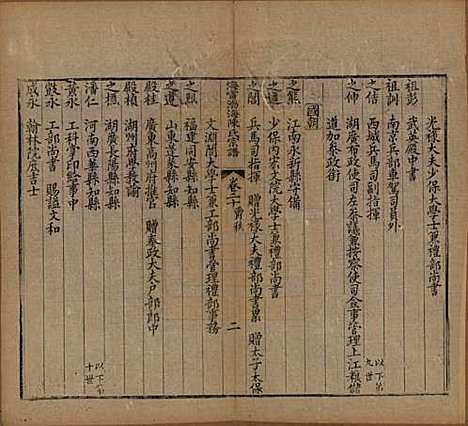 光祿大夫少保大學士兼禮部尚書
祖彭　武英殿中書
祖訓　南京兵部車駕司員外
之佶　西城兵馬司副指揮
之伸　湖廣布政使司左叅議兼按察使司僉事管理上江糧儲
道加叅政銜　以下第九世
國朝
之熊　江南永新縣守備
之遴　少保內弘文院大學士兼禮部尚書
之闇　兵馬司指揮　贈光祿大夫禮部尚書累　贈太子太保
文淵閣大學士兼工部尚書管理禮部事務
海寧渤海陳氏宗譜　卷二十　爵秩　二
之暹　福建　縣知縣
之遵　山東　縣知縣
殿柱　廣東高州府推官　贈奉政大夫戶部郎中
殿楨　湖州府學教諭
之楓　湖廣　陽縣知縣
潘仁　河南西華縣知縣
黃永　工科掌印給事中
敳永　工部尚書　賜諡文和
咸永　翰林院庶吉士　以下第十世